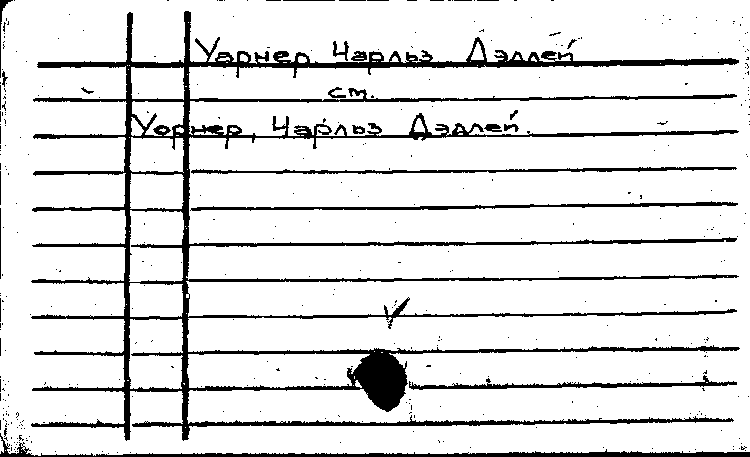 Уарнер, Чарльз Дэдлей
см.
Уорнер, Чарльз Дэдлей.